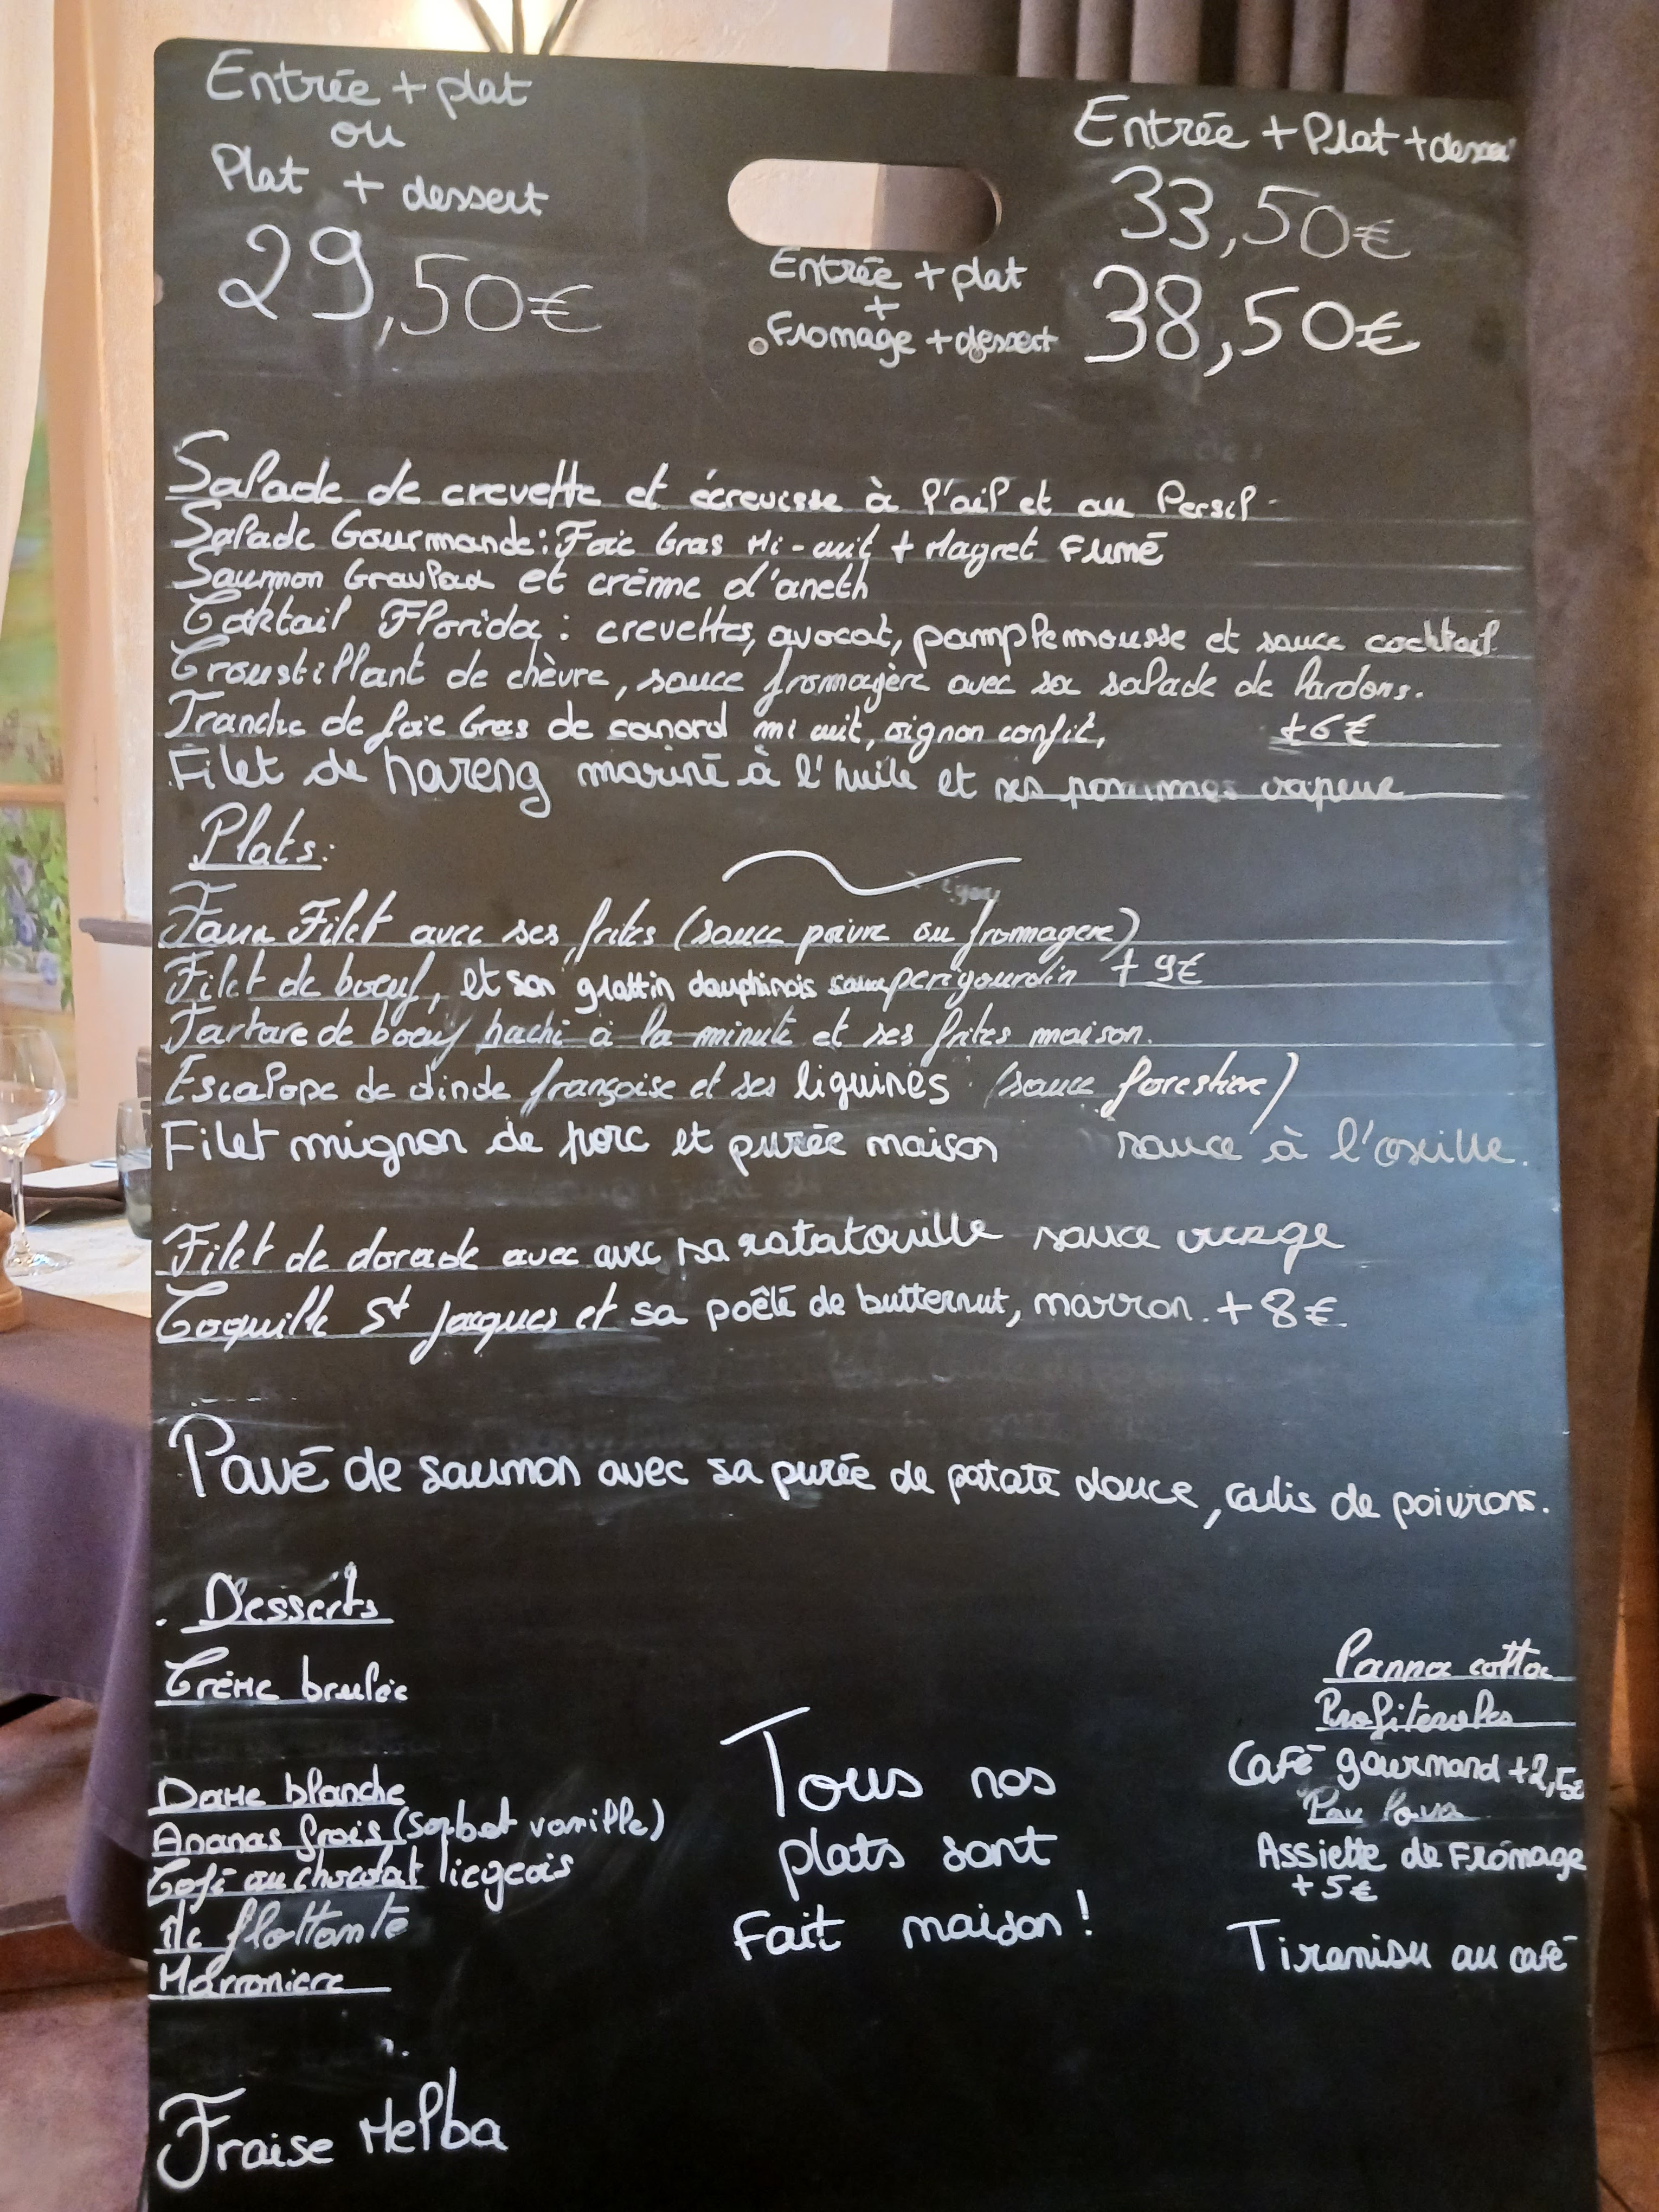 Entrée + plat
ou
Plat + dessert
29,50€
Entrée + Plat + dessert
33,50€
Entrée + plat
+
Fromage + dessert
38,50€
Salade de crevette et écrevisse à l'ail et au Persil
Salade Gourmande : Foie Gras Mi-cuit + Magret Fumé
Saumon Gravlax et crème d'aneth
Coktail Florida : crevettes, avocat, pamplemousse et sauce cocktail
Croustillant de chèvre, sauce fromagère avec sa salade de lardons.
Tranche de foie Gras de canard mi cuit, oignon confit, +6€
Filet de hareng mariné à l'huile et ses pommes vapeur
Plats:
Faux Filet avec ses frites (sauce poivre ou fromagere)
Filet de boeuf, et son grattin dauphinois sauce perigourdin + 9€
Tartare de boeuf haché à la minute et ses frites maison.
Escalope de dinde françaisse et ses liguines (sauce forestiere)
Filet mignon de porc et purée maison sauce à l'oseille.
Filet de dorade avec avec sa ratatouille sauce vierge
Coquille St Jacques et sa poêlé de butternut, marron. + 8€
Pavé de saumon avec sa purée de patate douce, coulis de poivrons.
Desserts
Crème brulée
Dame blanche
Ananas frais (Sorbet vanille)
Café ou chocolat liegeois
Ile flottante
Marroniere
Fraise Melba
Tous nos
plats sont
Fait maison !
Panna cotta
Profiteroles
Café gourmand +2,50
Pav lova
Assiette de Fromage
+ 5€
Tiramisu au café